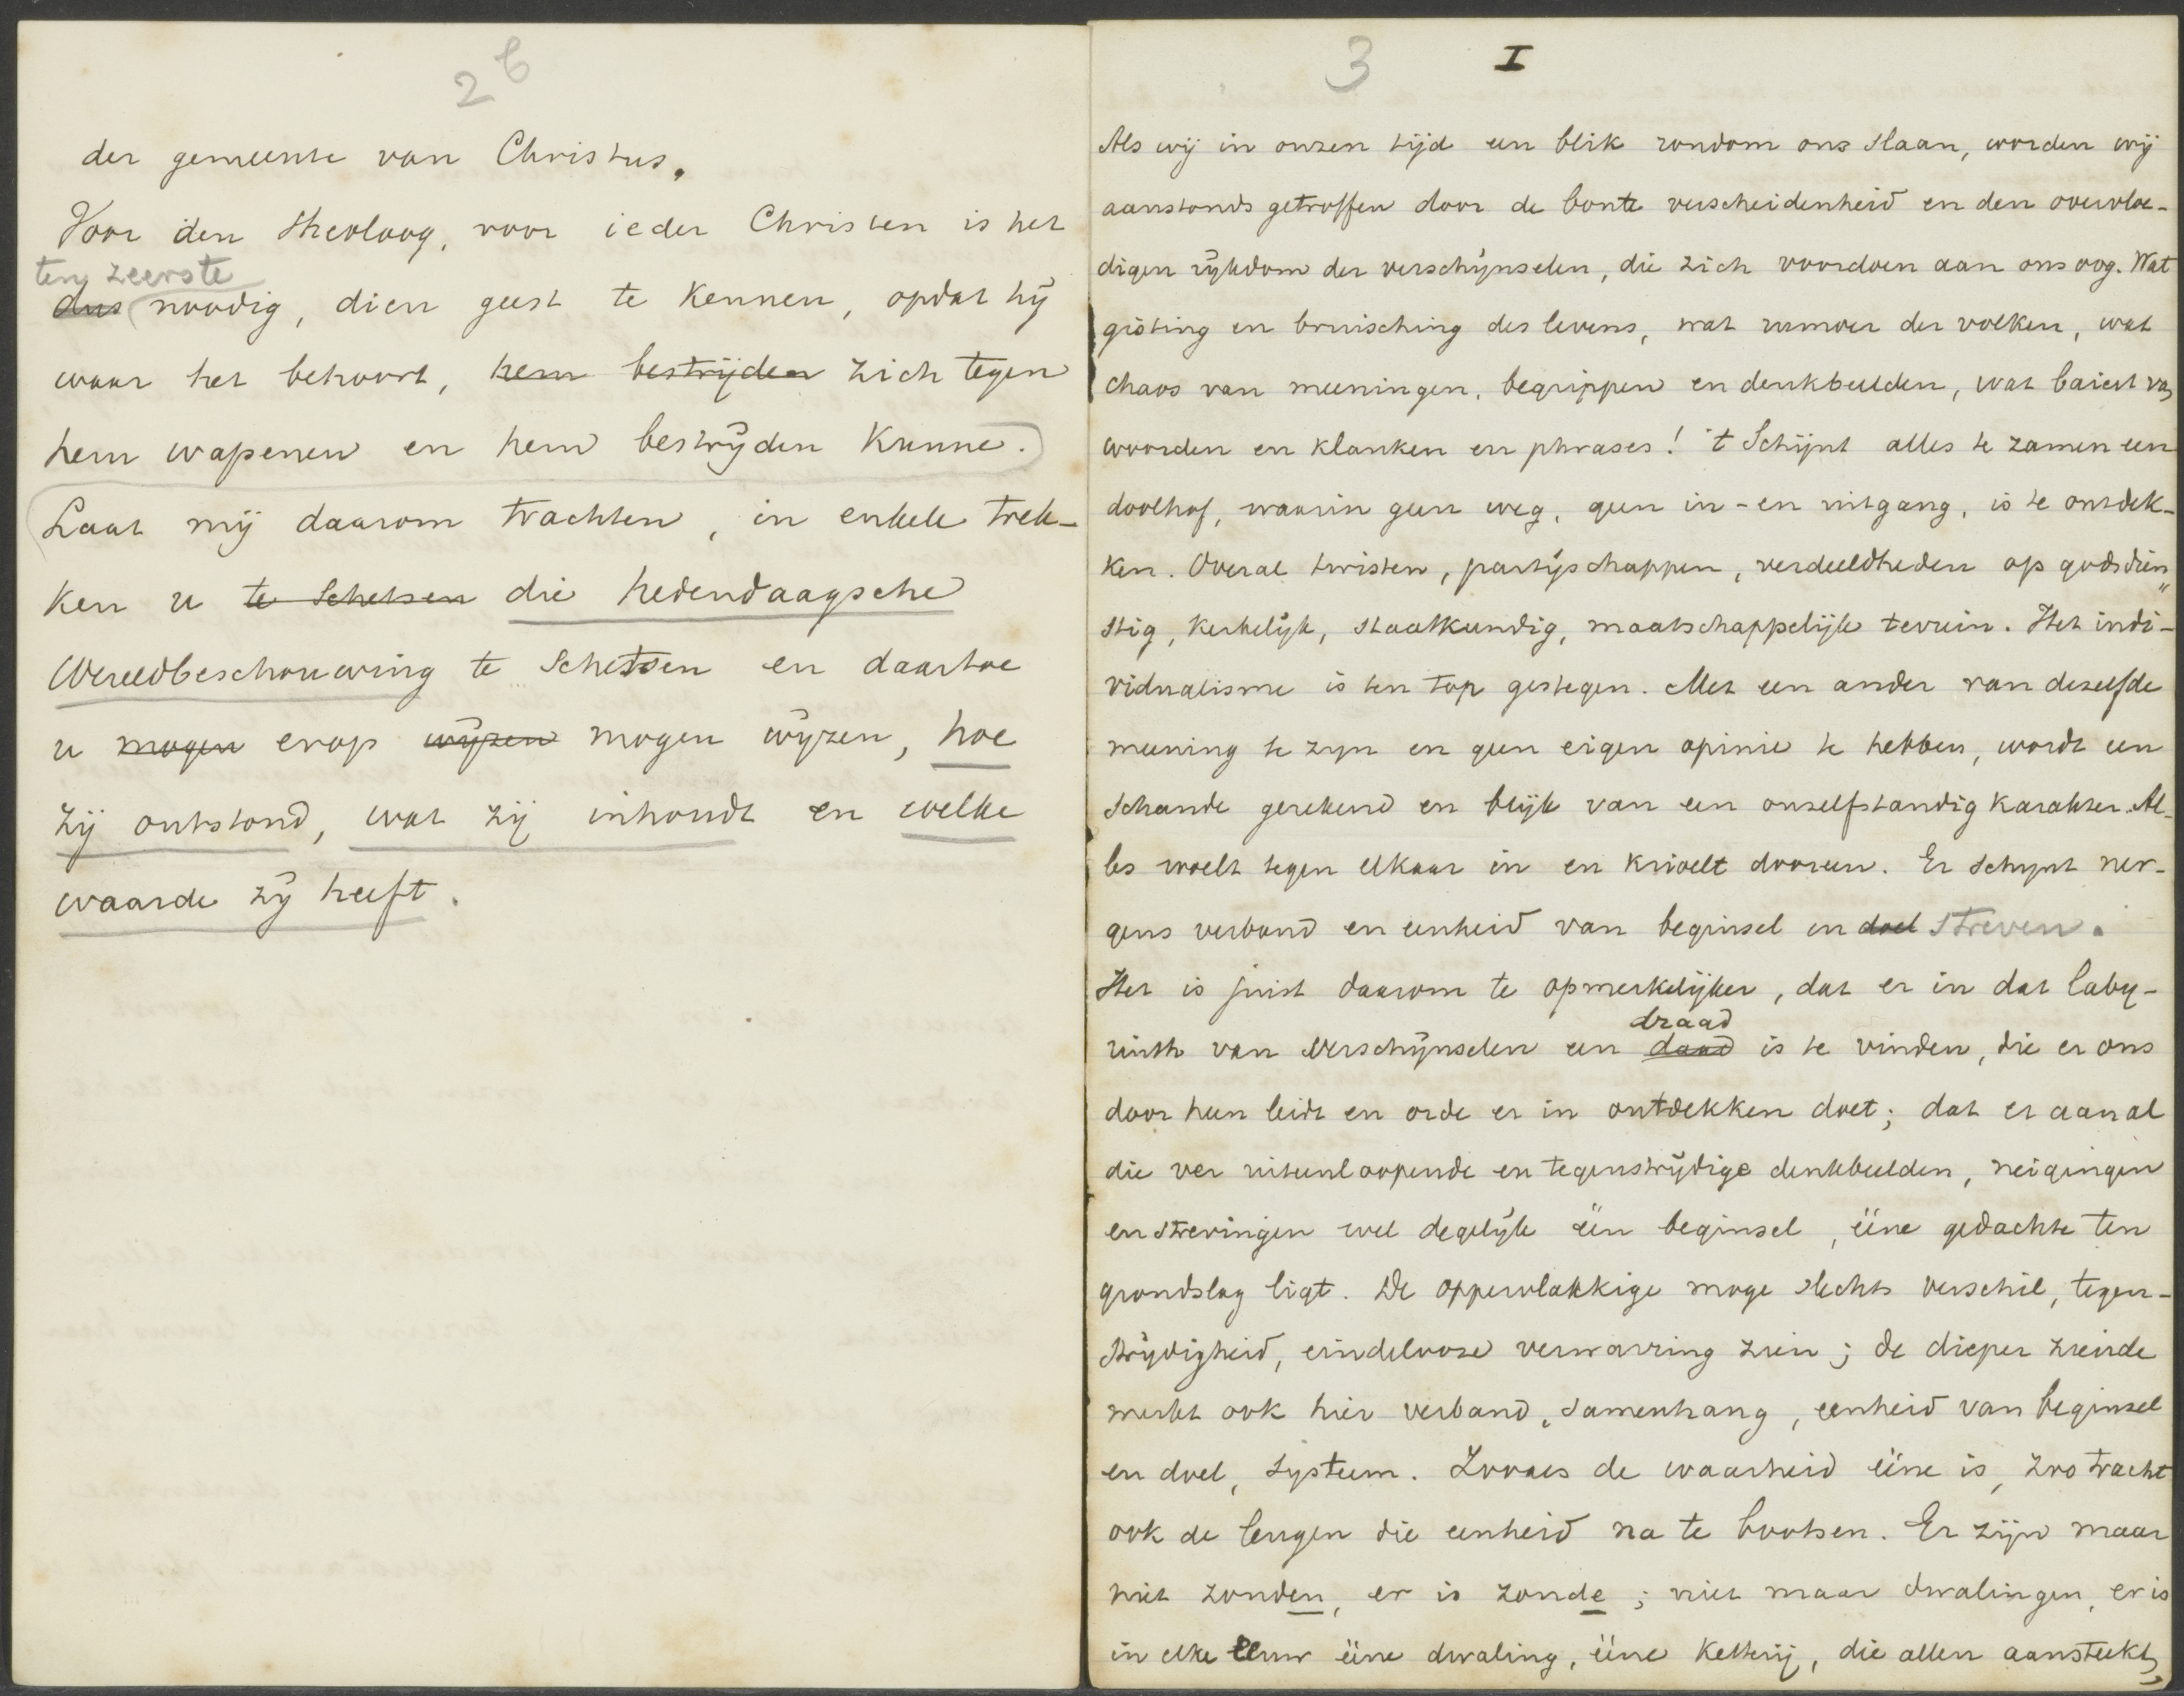 2 b
der gemeente van Christus.
Voor den theoloog, voor ieder Christen is het
ten zeerste
dus noodig, dien geest te kennen, opdat hij
waar het behoort, hem bestrijden zich tegen
hem wapenen en hem bestrijden kunne.
Laat mij daarom trachten, in enkele trek-
ken u te schetsen die hedendaagsche
Wereldbeschouwing te schetsen en daartoe
u mogen erop wijzen mogen wijzen, hoe
zij ontstond, wat zij inhoudt en welke
waarde zij heeft.
3 I
Als wij in onzen tijd een blik rondom ons slaan, worden wij
aanstonds getroffen door de bonte verscheidenheid en den overvloe-
digen rijkdom der verschijnselen, die zich voordoen aan ons oog. Wat
gisting en bruisching des levens, wat rumoer der volken, wat
chaos van meeningen, begrippen en denkbeelden, wat baiert van
woorden en klanken en phrases! 't Schijnt alles te zamen een
doolhof, waarin geen weg, geen in- en uitgang, is te ontdek-
ken. Overal twisten, partijschappen, verdeeldheden op godsdien"
stig, kerkelijk, staatkundig, maatschappelijk terrein. Het indi-
vidualisme is ten top gestegen. Met een ander van dezelfde
meening te zijn en geen eigen opinie te hebben, wordt een
schande gerekend en blijk van een onzelfstandig karakter. Al-
les woelt tegen elkaar in en krioelt dooreen. Er schijnt ner-
gens verband en eenheid van beginsel en doel streven.
Het is juist daarom te opmerkelijker, dat er in dat laby-
draad
rinth van verschijnselen een daad is te vinden, die er ons
door heen leidt en orde er in ontdekken doet; dat er aan al
die ver uiteenloopende en tegenstrijdige denkbeelden, neigingen
en strevingen wel degelijk één beginsel, ééne gedachte ten
grondslag ligt. De oppervlakkige moge slechts verschil, tegen-
strijdigheid, eindelooze verwarring zien; de dieper ziende
merkt ook hier verband, samenhang, eenheid van beginsel
en doel, systeem. Zooals de waarheid ééne is, zoo tracht
ook de leugen die eenheid na te bootsen. Er zijn maar
niet zonden, er is zonde; niet maar dwalingen, er is
in elke eeuw ééne dwaling, ééne ketterij, die allen aansteekt,